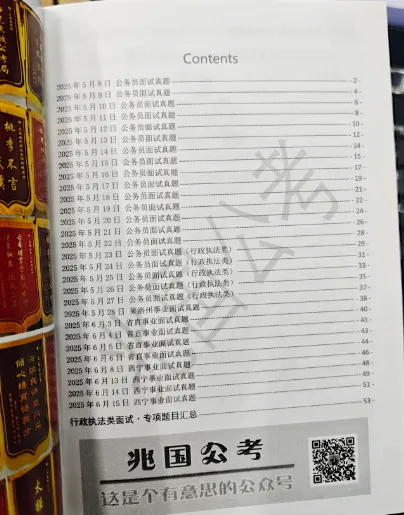 Contents
2025 年 5 月 8 日 公务员面试真题 - 2 -
2025 年 5 月 9 日 公务员面试真题 - 4 -
2025 年 5 月 10 日 公务员面试真题 - 6 -
2025 年 5 月 11 日 公务员面试真题 - 8 -
2025 年 5 月 12 日 公务员面试真题 - 10 -
2025 年 5 月 13 日 公务员面试真题 - 12 -
2025 年 5 月 14 日 公务员面试真题 - 14 -
2025 年 5 月 15 日 公务员面试真题 - 15 -
2025 年 5 月 16 日 公务员面试真题 - 17 -
2025 年 5 月 17 日 公务员面试真题 - 19 -
2025 年 5 月 18 日 公务员面试真题 - 21 -
2025 年 5 月 19 日 公务员面试真题 - 22 -
2025 年 5 月 20 日 公务员面试真题 - 24 -
2025 年 5 月 21 日 公务员面试真题 - 26 -
2025 年 5 月 22 日 公务员面试真题 - 28 -
2025 年 5 月 23 日 公务员面试真题（行政执法类） - 29 -
2025 年 5 月 24 日 公务员面试真题（行政执法类） - 31 -
2025 年 5 月 25 日 公务员面试真题（行政执法类） - 33 -
2025 年 5 月 26 日 公务员面试真题（行政执法类） - 35 -
2025 年 5 月 27 日 公务员面试真题（行政执法类） - 37 -
2025 年 5 月 28 日 果洛州事业面试真题 - 38 -
2025 年 6 月 3 日 省直事业面试真题 - 40 -
2025 年 6 月 4 日 省直事业面试真题 - 41 -
2025 年 6 月 5 日 省直事业面试真题 - 43 -
2025 年 6 月 6 日 省直事业面试真题 - 44 -
2025 年 6 月 8 日 西宁事业面试真题 - 46 -
2025 年 6 月 13 日 西宁事业面试真题 - 48 -
2025 年 6 月 14 日 西宁事业面试真题 - 49 -
2025 年 6 月 15 日 西宁事业面试真题 - 51 -
行政执法类面试·专项题目汇总 - 53 -
兆国公考
这是个有意思的公众号
桃李不言